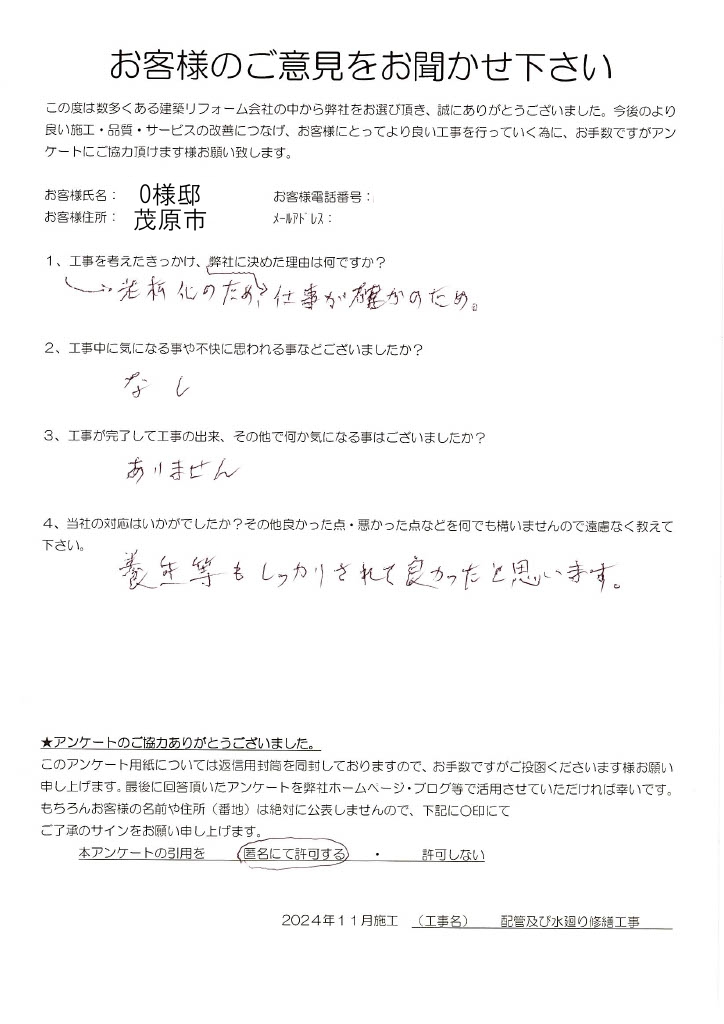 お客様のご意見をお聞かせ下さい
この度は数多くある建築リフォーム会社の中から弊社をお選び頂き、誠にありがとうございました。今後のより
良い施工・品質・サービスの改善につなげ、お客様にとってより良い工事を行っていく為に、お手数ですがアン
ケートにご協力頂けます様お願い致します。
お客様氏名： O様邸 お客様電話番号：
お客様住所： 茂原市 ﾒｰﾙｱﾄﾞﾚｽ：
１、工事を考えたきっかけ、弊社に決めた理由は何ですか？
老松化のため、仕事が確かのため。
２、工事中に気になる事や不快に思われる事などございましたか？
なし
３、工事が完了して工事の出来、その他で何か気になる事はございましたか？
ありません
４、当社の対応はいかがでしたか？その他良かった点・悪かった点などを何でも構いませんので遠慮なく教えて
下さい。
養生等もしっかりされて良かったと思います。
★アンケートのご協力ありがとうございました。
このアンケート用紙については返信用封筒を同封しておりますので、お手数ですがご投函くださいます様お願い
申し上げます。最後に回答頂いたアンケートを弊社ホームページ・ブログ等で活用させていただければ幸いです。
もちろんお客様の名前や住所（番地）は絶対に公表しませんので、下記に〇印にて
ご了承のサインをお願い申し上げます。
本アンケートの引用を 匿名にて許可する ・ 許可しない
2024年11月施工 （工事名） 配管及び水廻り修繕工事